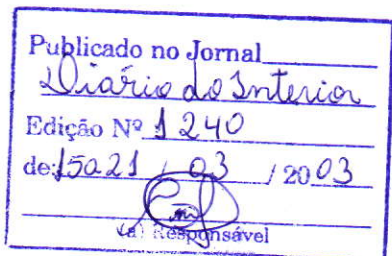 Publicado no Jornal
Diário do Interior
Edição Nº 1240
de: 15 a 21 / 03 / 2003
(a) Responsável